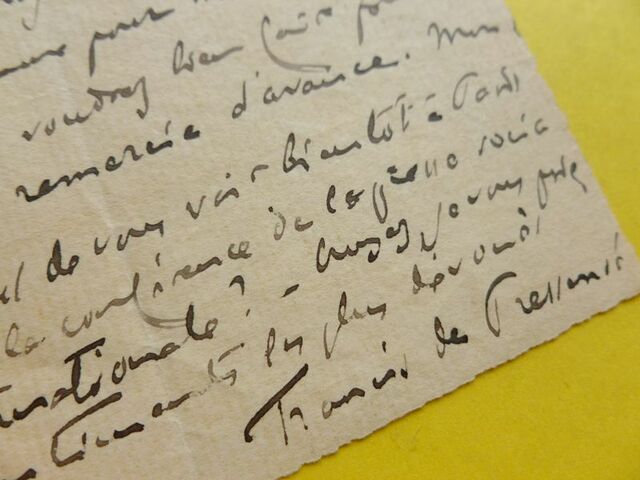 pour
voudrez bien faire pou
remercie d'avance. Mon
de vous voir bientôt à Paris
la conférence de la presse socia
rnationale? - Croyez, je vous prie,
timents les plus dévoués
Francis de Pressensé